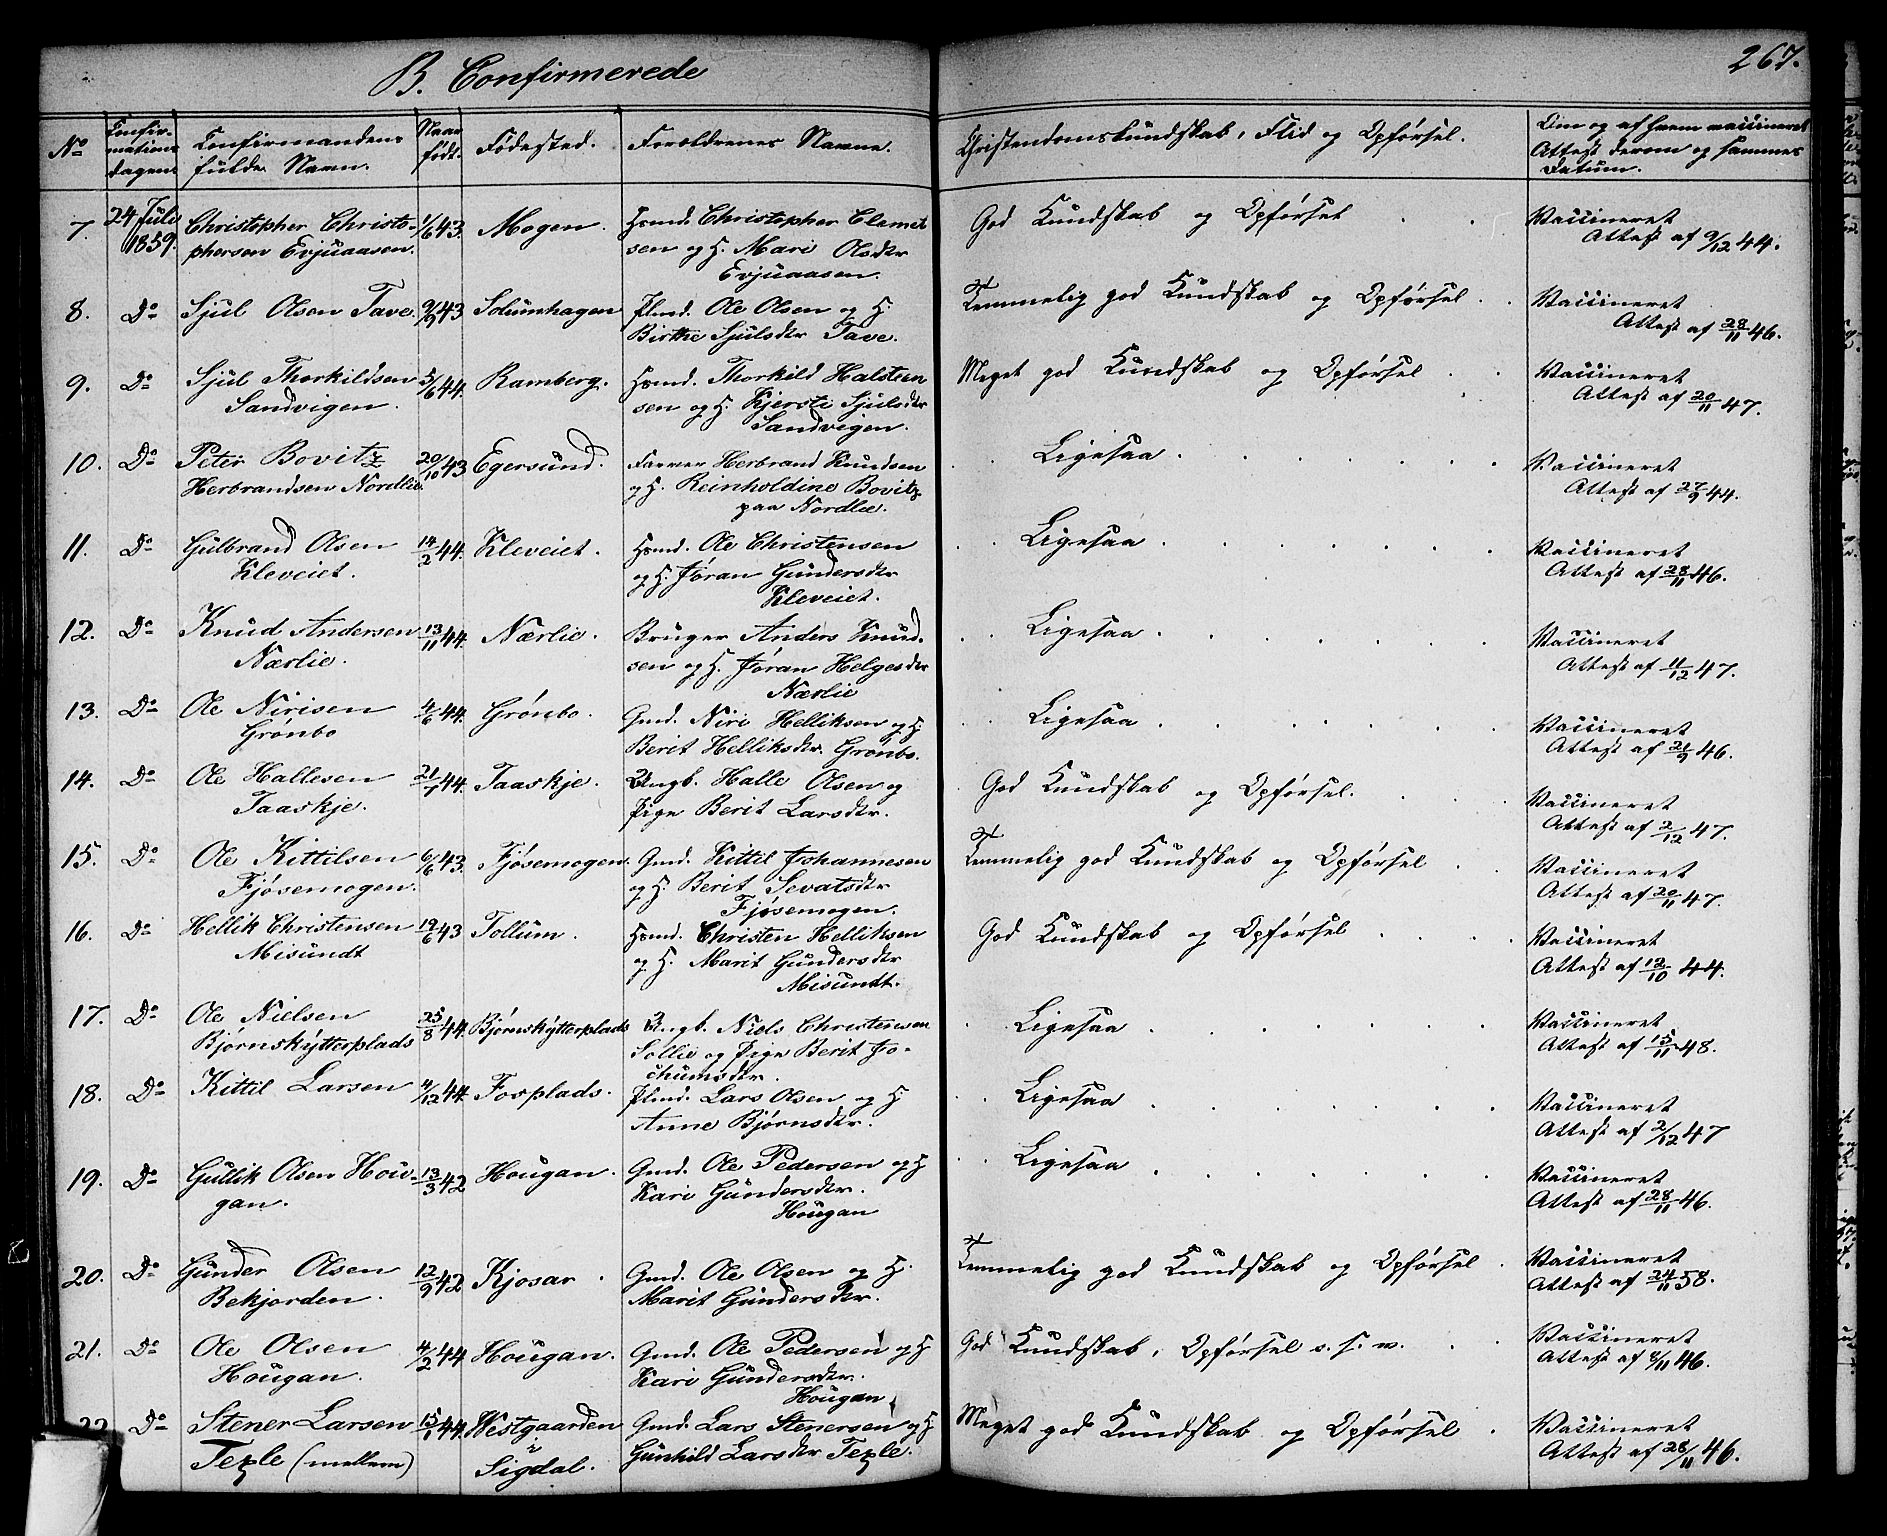 B. Confirmerede
267.
No
Confirmations dagen
Confirmandens fulde Navn.
Naar født.
Fødested.
Forældrenes Navne.
Christendomskundskab, Flid og Opførsel.
Om og af hvem vaccineret
Attest derom og sammes
Datum.
7. 24 Juli 1859. Christopher Christo-
phersen Evjuaasen. 1/6 43. Mogen.
Hsmd. Christopher Clemet
sen og H. Mari Olsdtr
Evjuaasen.
God Kundskab og Opførsel
Vaccineret
Attest af 9/12 44.
8. Do Sjul Olsen Tave. 9/9 43 Solumhagen
Flmd. Ole Olsen og H.
Birthe Sjulsdtr Tave.
Temmelig god Kundskab og Opførsel
Vaccineret
Attest af 28/11 46.
9. Do Sjul Thorkildsen
Sandvigen. 5/6 44. Ramberg.
Hsmd. Thorkild Halsten
sen og H. Kjersti Sjulsdtr
Sandvigen.
Meget god Kundskab og Opførsel
Vaccineret
Attest af 20/11 47.
10. Do Peter Bovitz
Herbrandsen Nordlie. 20/10 43 Egersund.
Farver Herbrand Knudsen
og H. Reinholdine Bovitz
paa Nordlie.
Ligesaa
Vaccineret
Attest af 27/9 44.
11. Do Gulbrand Olsen
Kleveiet. 14/2 44. Kleveiet.
Hsmd. Ole Christensen
og H. Jøran Gundersdtr
Kleveiet.
Ligesaa
Vaccineret
Attest af 28/11 46.
12. Do Knud Andersen
Nærlie. 13/11 44. Nærlie.
Bruger Anders Knud-
sen og H. Jøran Helgesdtr
Nærlie
Ligesaa
Vaccineret
Attest af 11/12 47.
13. Do Ole Nirisen
Grønbo 4/6 44. Grønbo.
Gmd. Niri Helliksen og H.
Berit Helliksdtr. Grønbo.
Ligesaa
Vaccineret
Attest af 21/9 46.
14. Do Ole Hallesen
Taaskje. 21/1 44. Taaskje.
Ungk. Halle Olsen og
Pige Berit Larsdtr.
God Kundskab og Opførsel.
Vaccineret
Attest af 2/12 47.
15. Do Ole Kittilsen
Fjøsemogen. 6/6 43. Fjøsemogen.
Gmd. Kittil Johannesen
og H. Berit Sevatsdtr
Fjøsemogen.
Temmelig god Kundskab og Opførsel
Vaccineret
Attest af 20/11 47.
16. Do Hellik Christensen
Misundt 19/6 43 Tollum.
Hsmd. Christen Helliksen
og H. Marit Gundersdtr
Misundt.
God Kundskab og Opførsel
Vaccineret
Attest af 12/10 44.
17. Do Ole Nielsen
Bjørnskytterplads 25/8 44. Bjørnskytterplads
Ungk. Niels Christensen
Sollie og Pige Berit Jo-
chumsdtr.
Ligesaa
Vaccineret
Attest af 15/11 48.
18. Do Kittil Larsen 4/12 44. Fosplads.
Flmd. Lars Olsen og H
Anne Bjørnsdtr.
Ligesaa
Vaccineret
Attest af 2/12 47
19. Do Gullik Olsen Hou-
gan. 13/3 42 Hougan.
Gmd. Ole Pedersen og H
Kari Gundersdtr.
Hougan
Ligesaa
Vaccineret
Attest af 28/11 46.
20. Do Gunder Olsen
Bekjorden. 12/9 42 Kjosar.
Gmd. Ole Olsen og H.
Marit Gundersdtr.
Temmelig god Kundskab og Opførsel
Vaccineret
Attest af 24/11 58.
21. Do Ole Olsen
Hougan. 4/2 44 Hougan.
Gmd. Ole Pedersen og H
Kari Gundersdtr.
Hougan
God Kundskab, Opførsel o. s. v.
Vaccineret
Attest af 8/11 46.
22 Do Stener Larsen
Texle (mellem) 15/1 44. Westgaarden
i Sigdal.
Gmd. Lars Stenersen og H
Gunhild Larsdtr Texle.
Meget god Kundskab og Opførsel
Vaccineret
Attest af 28/11 46.